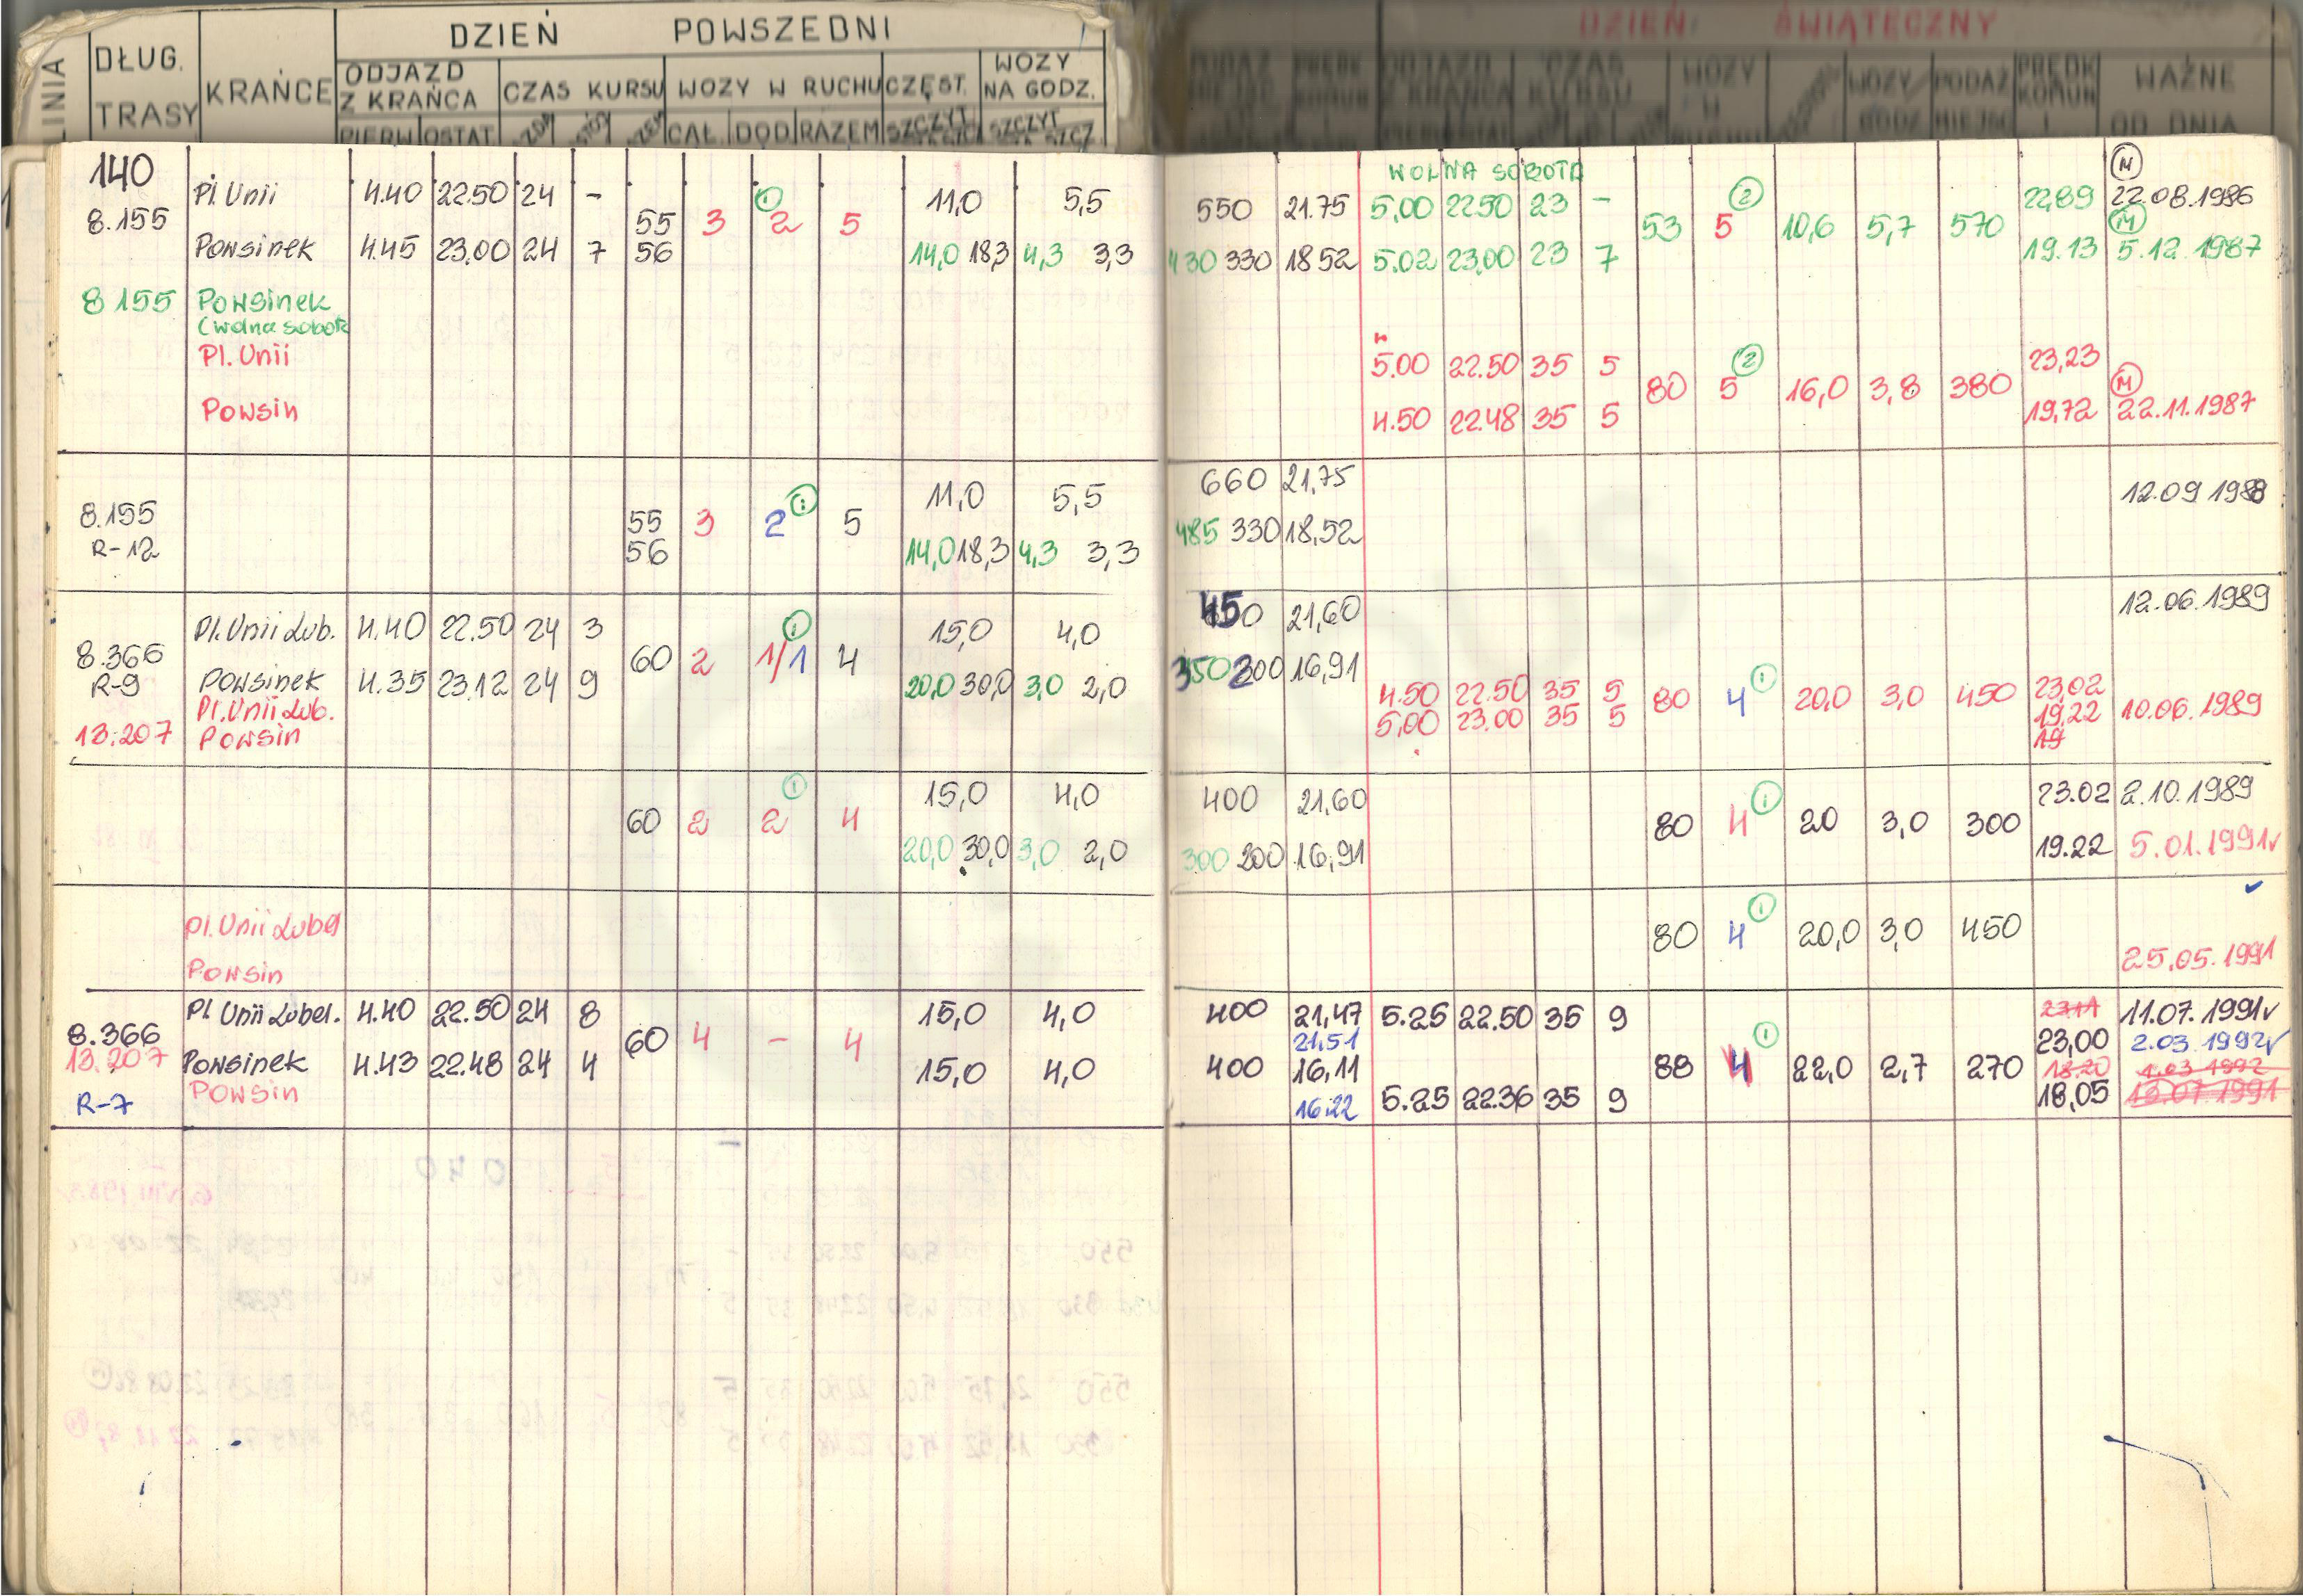 DZIEŃ POWSZEDNI DZIEŃ ŚWIĄTECZNY
LINIA DŁUG. TRASY KRAŃCE ODJAZD Z KRAŃCA CZAS KURSU WOZY W RUCHU CZĘST. WOZY NA GODZ. WAŻNE OD DNIA
PIERW OSTAT CAŁ. DOD RAZEM SZCZYT SZCZYT
140 WOLNA SOBOTA N
Pl. Unii 4.40 22.50 24 - 11,0 5,5 550 21.75 5,00 22.50 23 - 22,89 22.08.1986
8.155 55 3 1 2 5 53 5 2 10,6 5,7 570 M
Powsinek 4.45 23.00 24 7 56 14,0 18,3 4,3 3,3 430 330 18 52 5.02 23.00 23 7 19.13 5.12.1987
8 155 Powsinek
(wolna sobota
Pl. Unii 5.00 22.50 35 5 23,23
80 5 2 16,0 3,8 380 M
Powsin 4.50 22.48 35 5 19,72 22.11.1987
11,0 5,5 660 21,75 12.09 1988
8.155 55 3 2 1 5
R-12 56 14,0 18,3 4,3 3,3 485 330 18,52
Pl. Unii Lub. 4.40 22.50 24 3 15,0 4,0 450 21,60 12.06.1989
8.366 60 2 1/1 1 4
R-9 Powsinek 4.35 23.12 24 9 20,0 30,0 3,0 2,0 350 200 16,91
Pl. Unii Lub. 4.50 22.50 35 5 80 4 1 20,0 3,0 450 23,02 10.06.1989
13.207 Powsin 5,00 23.00 35 5 19.22
19
15,0 4,0 400 21,60 23.02 2.10.1989
60 2 2 1 4 80 4 1 20 3,0 300
20,0 30,0 3,0 2,0 300 200 16,91 19.22 5.01.1991
Pl. Unii Lubel 80 4 1 20,0 3,0 450
Powsin 25.05.1991
Pl. Unii Lubel. 4.40 22.50 24 8 15,0 4,0 400 21,47 5.25 22.50 35 9 11.07.1991
8.366 60 4 - 4 21,51 1 23,00 2.03.1992
13.207 Powsinek 4.43 22.48 24 4 15,0 4,0 400 16,11 88 4 22,0 2,7 270 18.20 1.03 1992
Powsin
R-7 16.22 5.25 22.36 35 9 18,05 13.07.1991